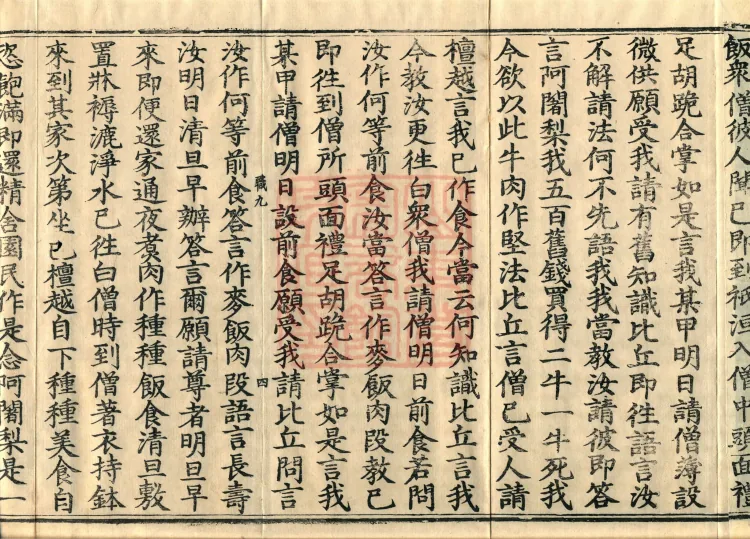 飯衆僧彼人聞已即到祇洹入僧中頭面禮
足胡跪合掌如是言我某甲明日請僧薄設
微供願受我請有舊知識比丘即徃語言汝
不解請法何不先語我我當教汝請彼即荅
言阿闍梨我五百舊錢買得二牛一牛死我
今欲以此牛肉作堅法比丘言僧已受人請
檀越言我已作食今當云何知識比丘言我
今教汝更徃白衆僧我請僧明日前食若問
汝作何等前食汝當荅言作麥飯肉段教已
即徃到僧所頭面禮足胡跪合掌如是言我
某甲請僧明日設前食願受我請比丘問言
職九
四
汝作何等前食荅言作麥飯肉段語言長壽
汝明日清旦早辦荅言爾願請尊者明旦早
來即便還家通夜煮肉作種種飯食清旦敷
置牀褥漉淨水已徃白僧時到僧著衣持鉢
來到其家次第坐已檀越自下種種美食自
恣飽滿即還精舍園民作是念阿闍梨是一